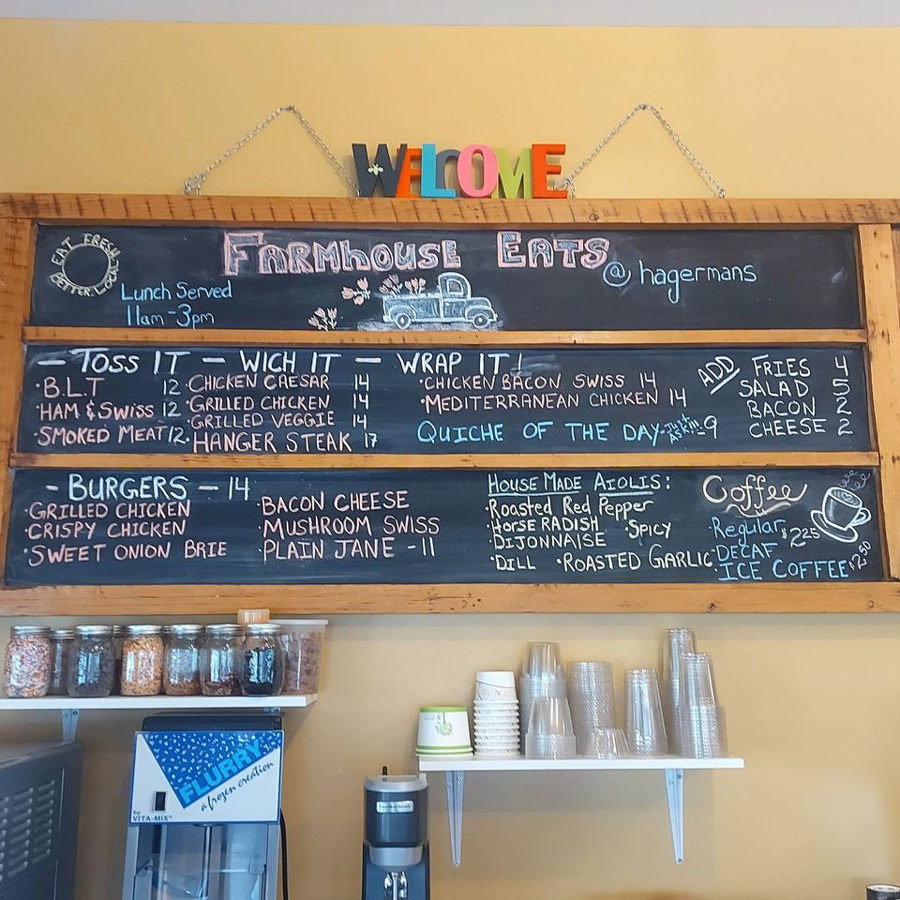 WELCOME
EAT FRESH
BETTER. LOCAL
FARMHOUSE EATS
@hagermans
LUNCH SERVED
11am-3pm
- TOSS IT - WICH IT - WRAP IT!
·B.L.T 12
·HAM & SWISS 12
·SMOKED MEAT 12
·CHICKEN CAESAR 14
·GRILLED CHICKEN 14
·GRILLED VEGGIE 14
·HANGER STEAK 17
·CHICKEN BACON SWISS 14
·MEDITERRANEAN CHICKEN 14
QUICHE OF THE DAY-JUST ASK!!!-9
ADD
FRIES 4
SALAD 5
BACON 2
CHEESE 2
- BURGERS - 14
·GRILLED CHICKEN
·CRISPY CHICKEN
·SWEET ONION BRIE
·BACON CHEESE
·MUSHROOM SWISS
·PLAIN JANE -11
HOUSE MADE AIOLIS:
·Roasted Red Pepper
·HORSERADISH
·DIJONNAISE
·SPICY
·DILL ·ROASTED GARLIC
Coffee
·Regular $2.25
·DECAF
·ICE COFFEE $2.50
FLURRY
a frozen creation
by
VITA-MIX®